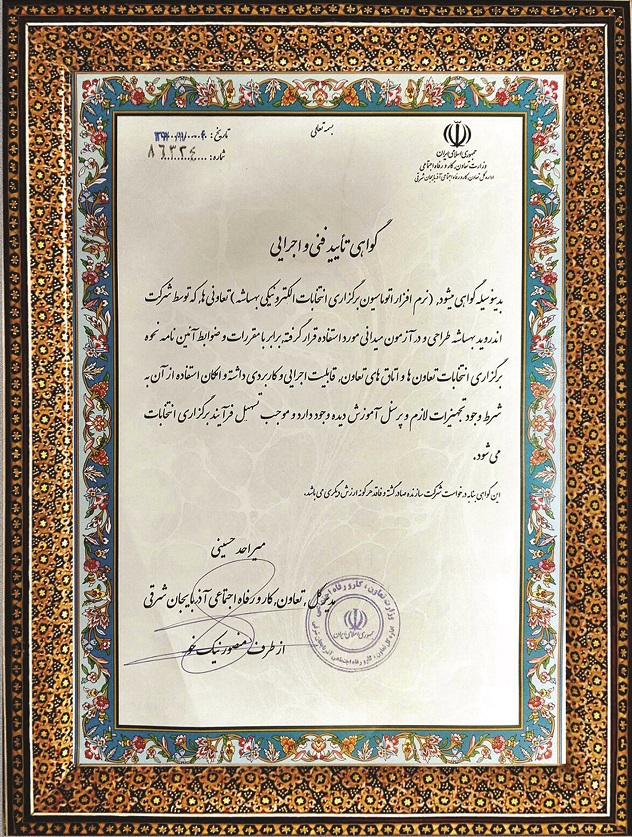 بسمه تعالی
جمهوری اسلامی ایران
وزارت تعاون، کار و رفاه اجتماعی
اداره کل تعاون، کار و رفاه اجتماعی آذربایجان شرقی
تاریخ:
شماره: ۸۶۳۲٤
گواهی تأیید فنی و اجرایی
بدینوسیله گواهی میشود، (نرم افزار اتوماسیون برگزاری انتخابات الکترونیکی بهساشه) تعاونی ها، که توسط شرکت
اندروید بهساشه طراحی و در آزمون میدانی مورد استفاده قرار گرفته، برابر با مقررات و ضوابط آئین نامه نحوه
برگزاری انتخابات تعاون ها و اتاق های تعاون، قابلیت اجرایی و کاربردی داشته و امکان استفاده از آن به
شرط وجود تجهیزات لازم و پرسنل آموزش دیده وجود دارد و موجب تسهیل فرآیند برگزاری انتخابات
می شود.
این گواهی بنا به درخواست شرکت سازنده صادر گشته و فاقد هر گونه ارزش دیگری می باشد.
میر احد حسینی
مدیر کل تعاون، کار و رفاه اجتماعی آذربایجان شرقی
از طرف منصور نیک
وزارت تعاون، کار و رفاه اجتماعی
جمهوری اسلامی ایران
اداره کل تعاون، کار و رفاه اجتماعی آذربایجان شرقی